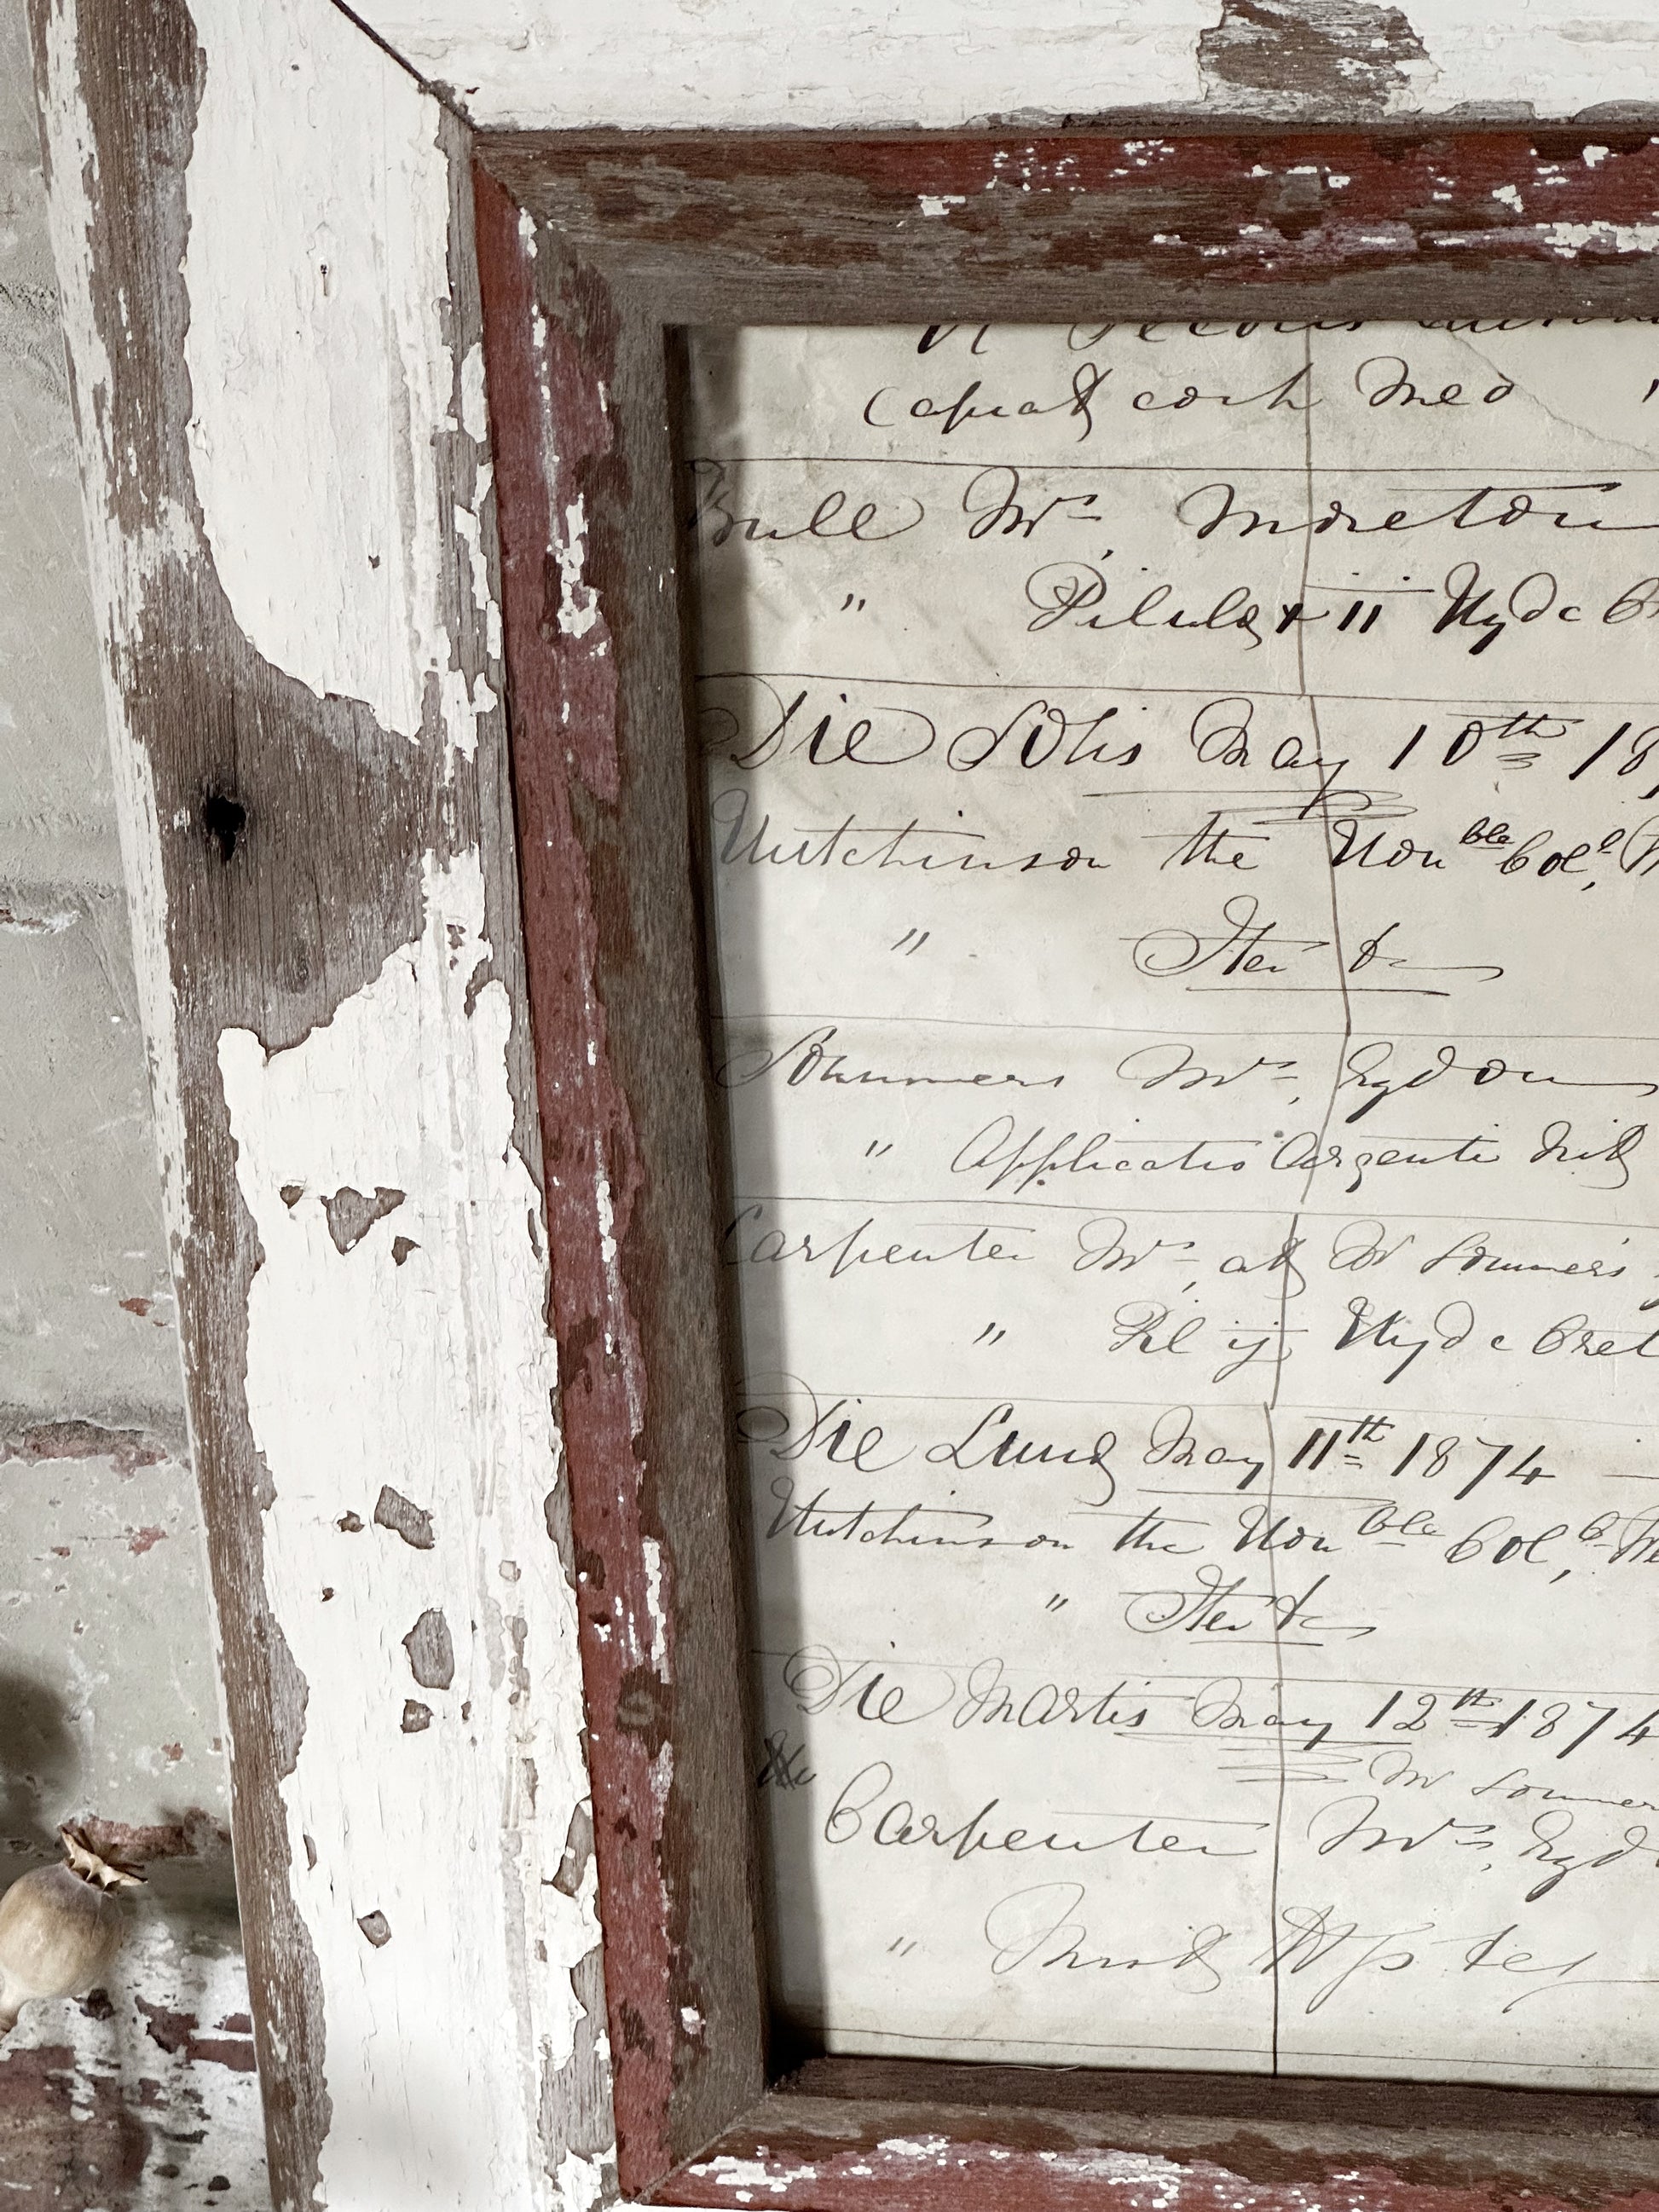 cort Med
Bull Mrs, Moreton
" Pilulæ ii Hyd c
Die Solis May 10th 18
Hutchinson the Honble Col,
" Iter &c
Sommers Mrs, Eydon
" Applicatio Argenti Nit
Carpenter Mrs, at Mr Sommers
" Pil ij Hyd c Cret
Die Lunæ May 11th 1874
Hutchinson the Honble Col,
" Iter &c
Die Martis May 12th 1874
Mr Sommer
Carpenter Mrs, Eyd
" Mist